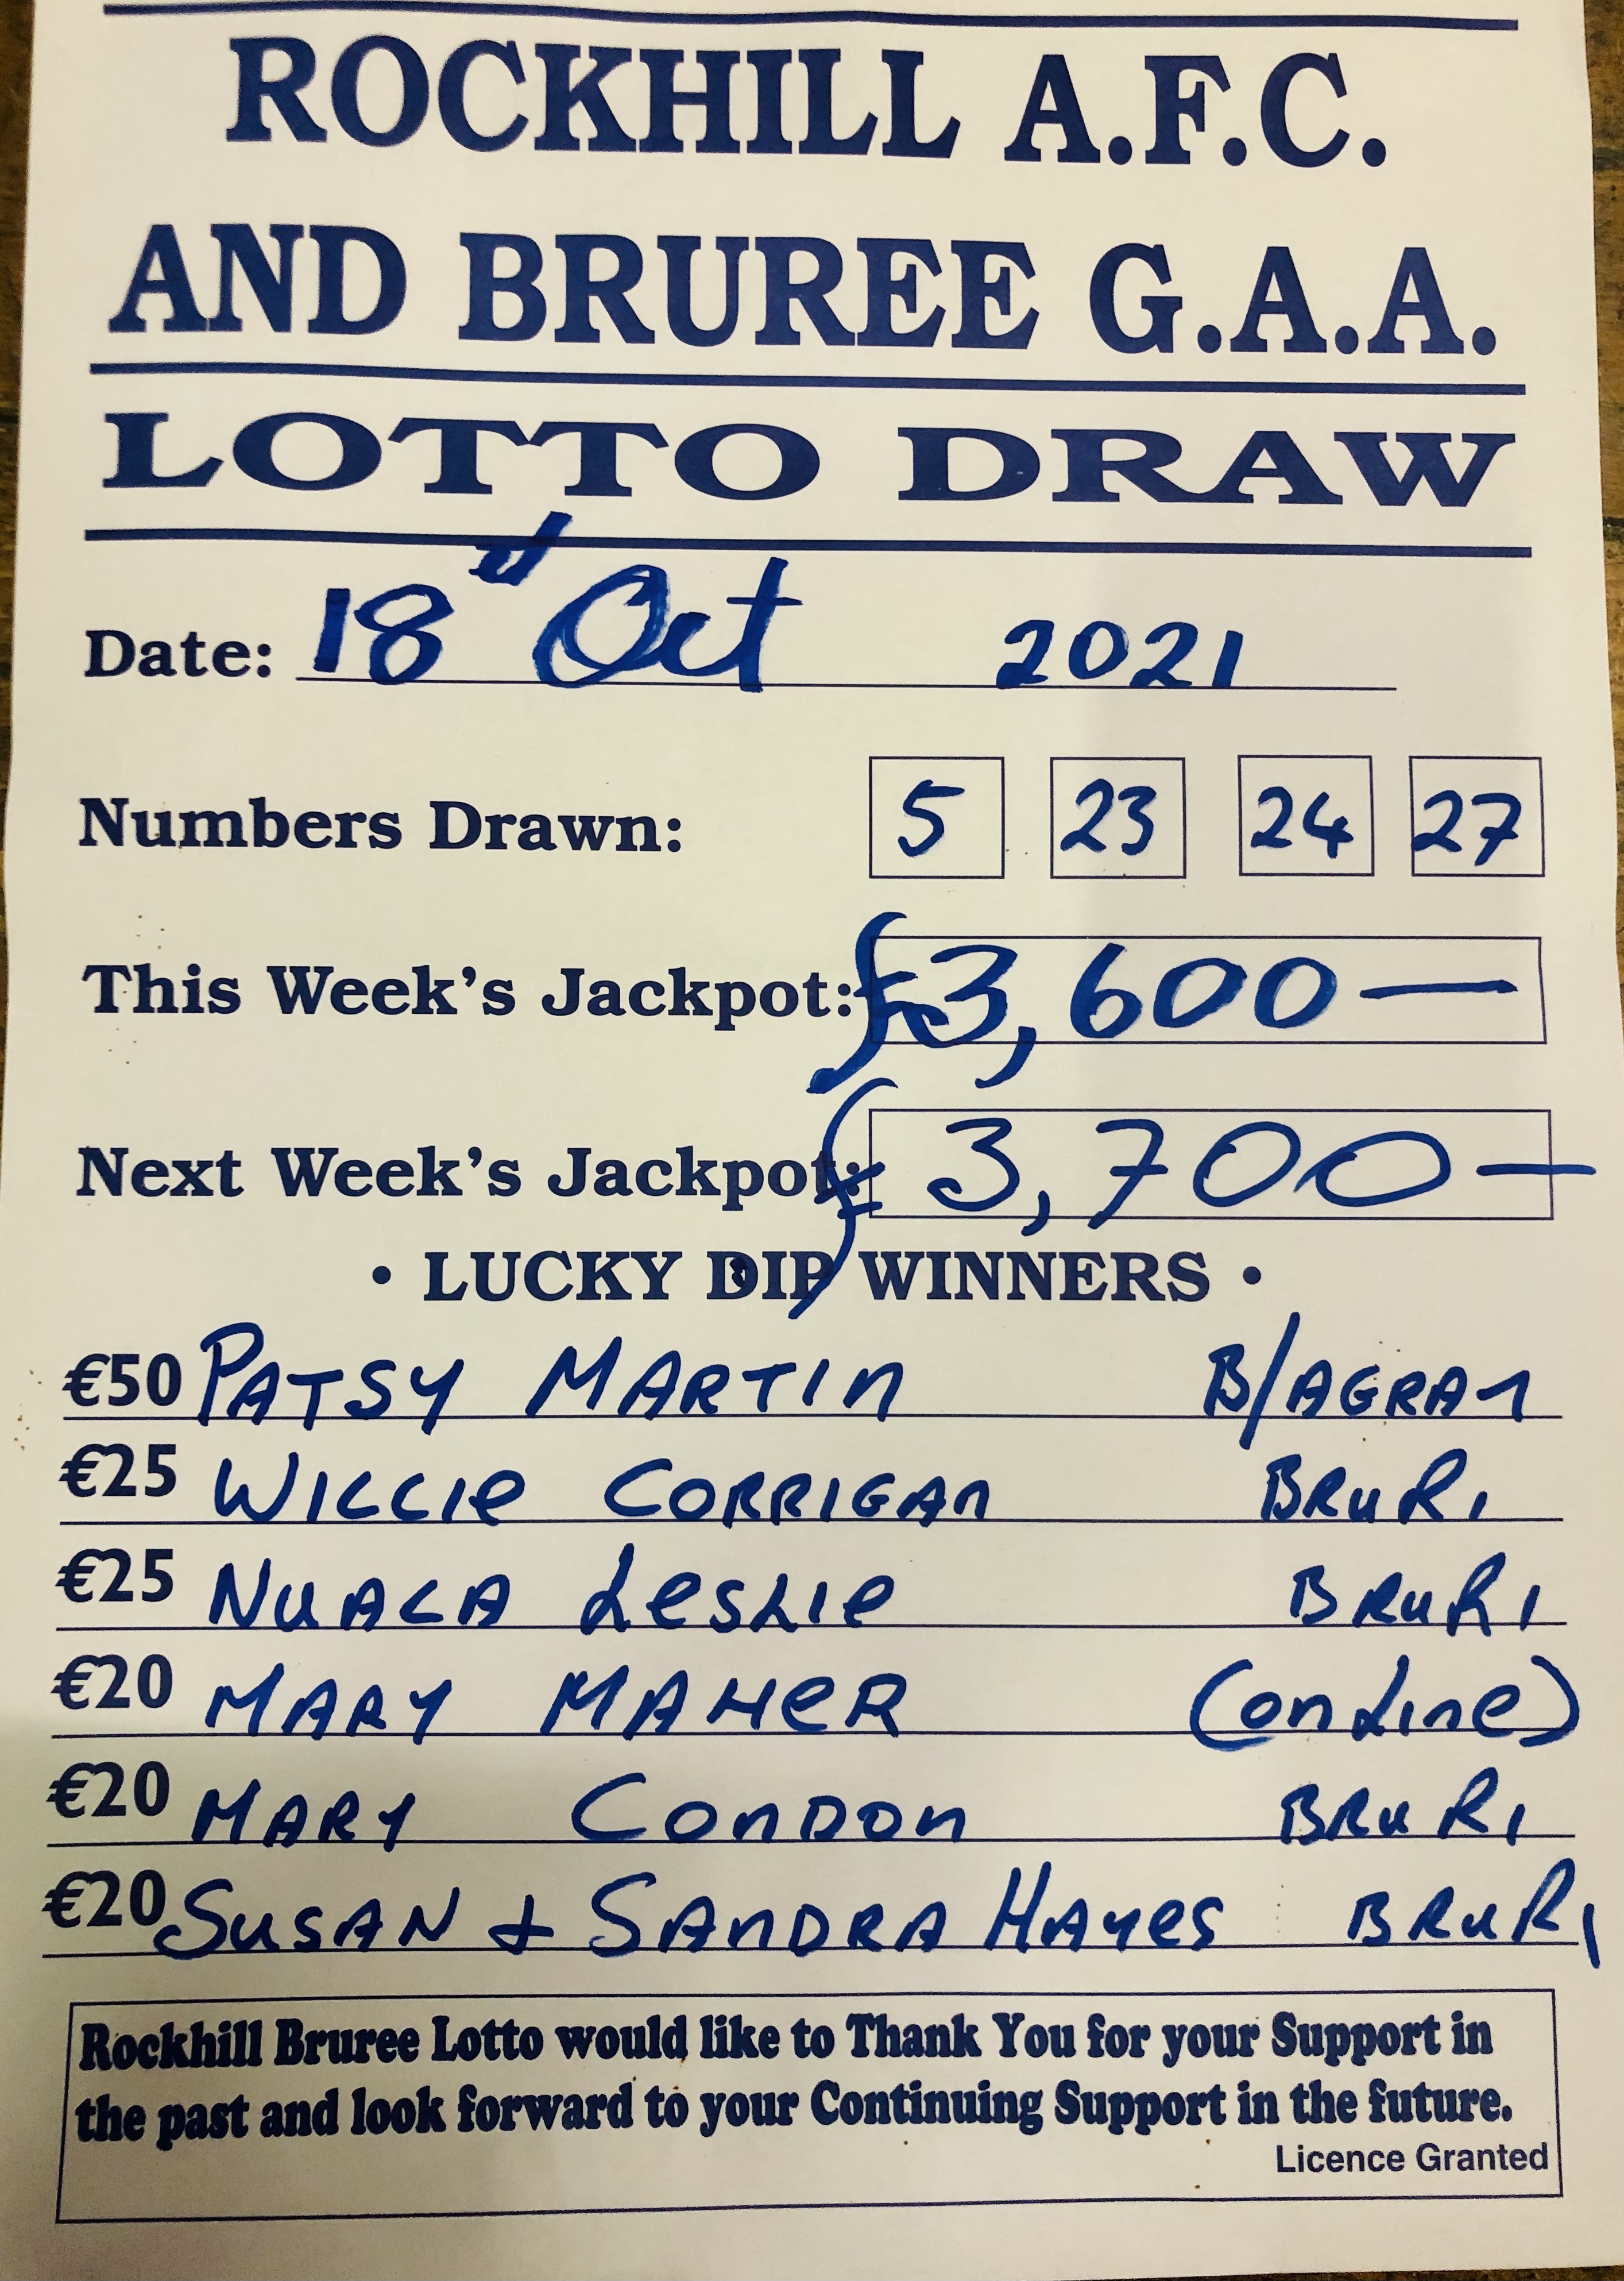 ROCKHILL A.F.C.
AND BRUREE G.A.A.
LOTTO DRAW
Date: 18th Oct 2021
Numbers Drawn: 5 23 24 27
This Week's Jackpot: €3,600—
Next Week's Jackpot: € 3,700—
• LUCKY DIP WINNERS •
€50 PATSY MARTIN B/AGRAN
€25 WILLIE CORRIGAN BRURI
€25 NUALA LESLIE BRURI
€20 MARY MAHER (ONLINE)
€20 MARY CONDON BRURI
€20 SUSAN + SANDRA HAYES BRURI
Rockhill Bruree Lotto would like to Thank You for your Support in
the past and look forward to your Continuing Support in the future.
Licence Granted